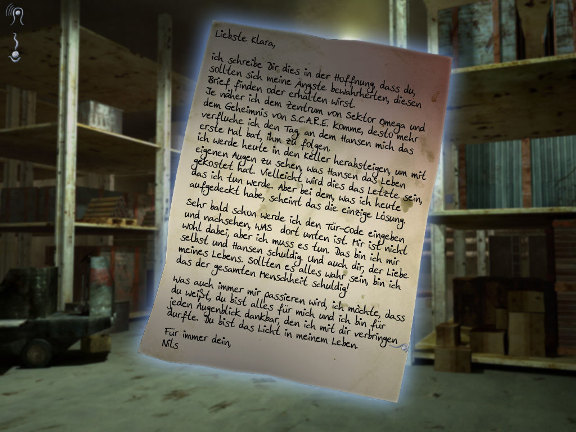 Liebste Klara,
ich schreibe Dir dies in der Hoffnung, dass du,
sollten sich meine Ängste bewahrheiten, diesen
Brief finden oder erhalten wirst.
Je näher ich dem Zentrum von Sektor Omega und
dem Geheimnis von S.C.A.R.E. komme, desto mehr
verfluche ich den Tag, an dem Hansen mich das
erste Mal bat, ihm zu folgen.
Ich werde heute in den Keller herabsteigen, um mit
eigenen Augen zu sehen, was Hansen das Leben
gekostet hat. Vielleicht wird dies das Letzte sein,
das ich tun werde. Aber bei dem, was ich heute
aufgedeckt habe, scheint das die einzige Lösung.
Sehr bald schon werde ich den Tür-Code eingeben
und nachsehen, WAS dort unten ist. Mir ist nicht
wohl dabei, aber ich muss es tun. Das bin ich mir
selbst und Hansen schuldig, und auch dir, der Liebe
meines Lebens. Sollten es alles wahr sein, bin ich
das der gesamten Menschheit schuldig!
Was auch immer mir passieren wird, ich möchte, dass
du weißt, du bist alles für mich und ich bin für
jeden Augenblick dankbar, den ich mit dir verbringen
durfte. Du bist das Licht in meinem Leben.
Für immer dein,
Nils